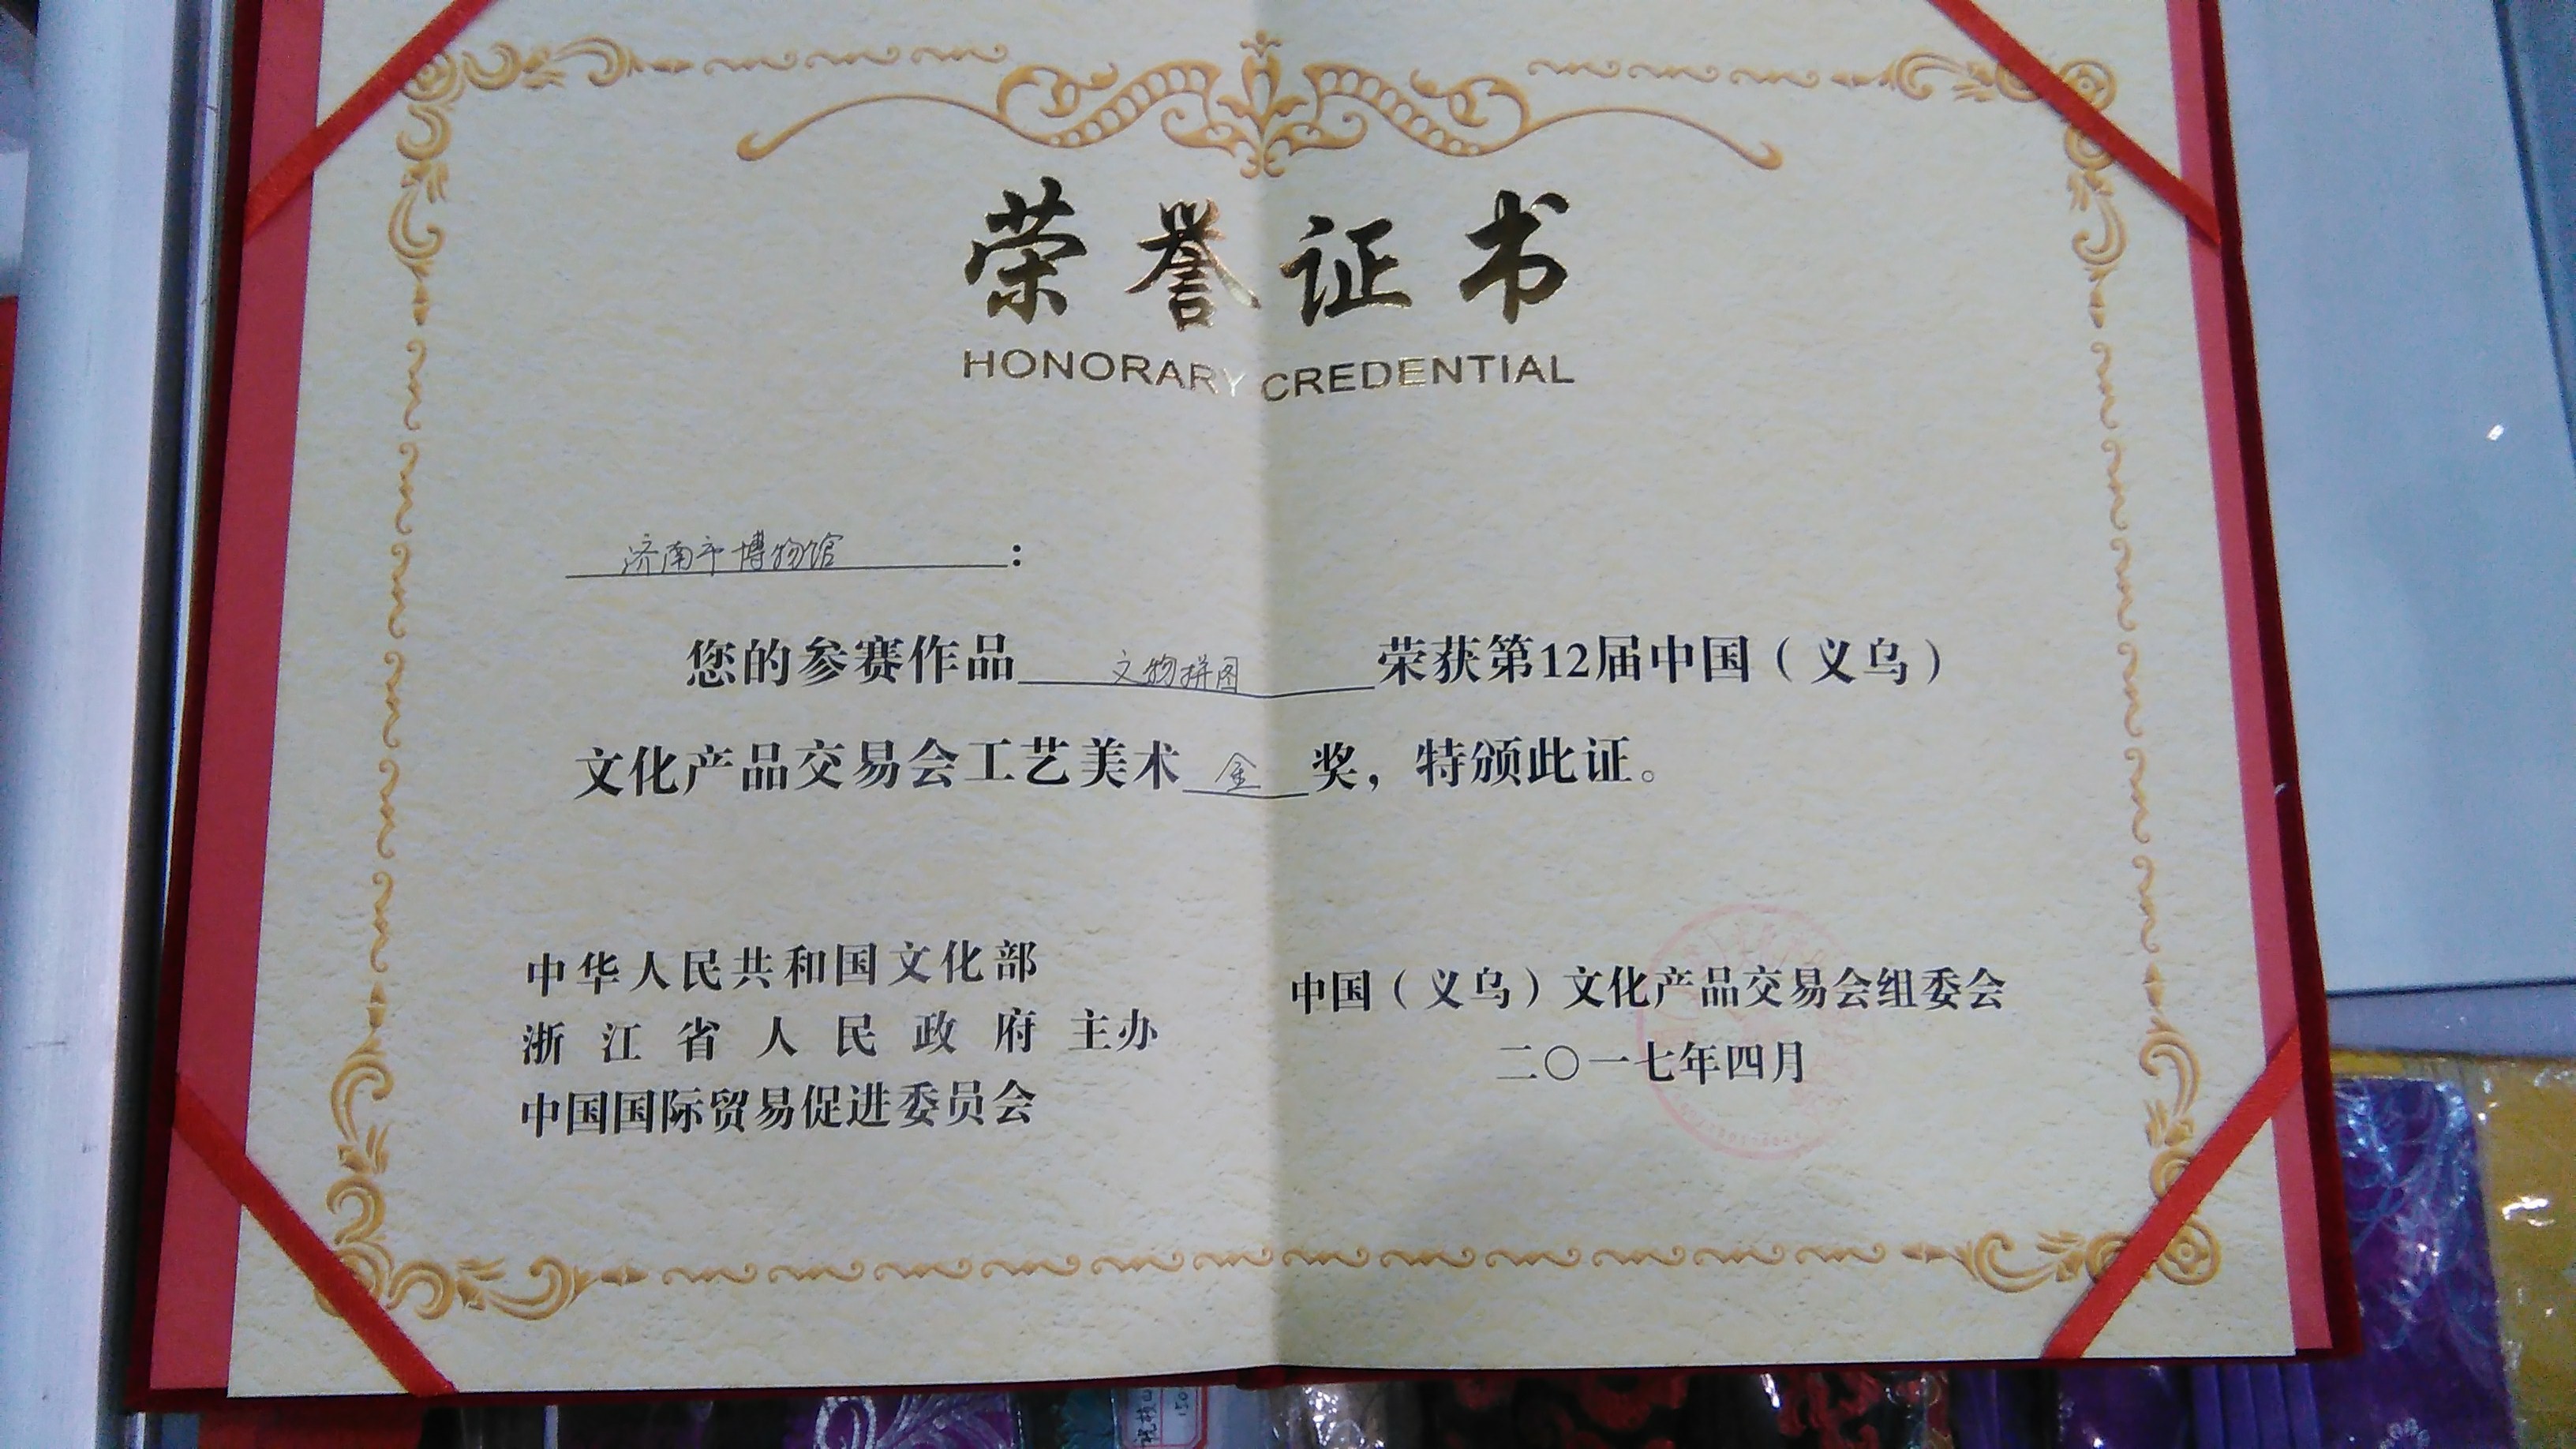 荣誉证书
HONORARY CREDENTIAL
济南市博物馆:
您的参赛作品 文物拼图 荣获第12届中国（义乌）
文化产品交易会工艺美术 金 奖，特颁此证。
中华人民共和国文化部
浙江省人民政府 主办
中国国际贸易促进委员会
中国（义乌）文化产品交易会组委会
二〇一七年四月